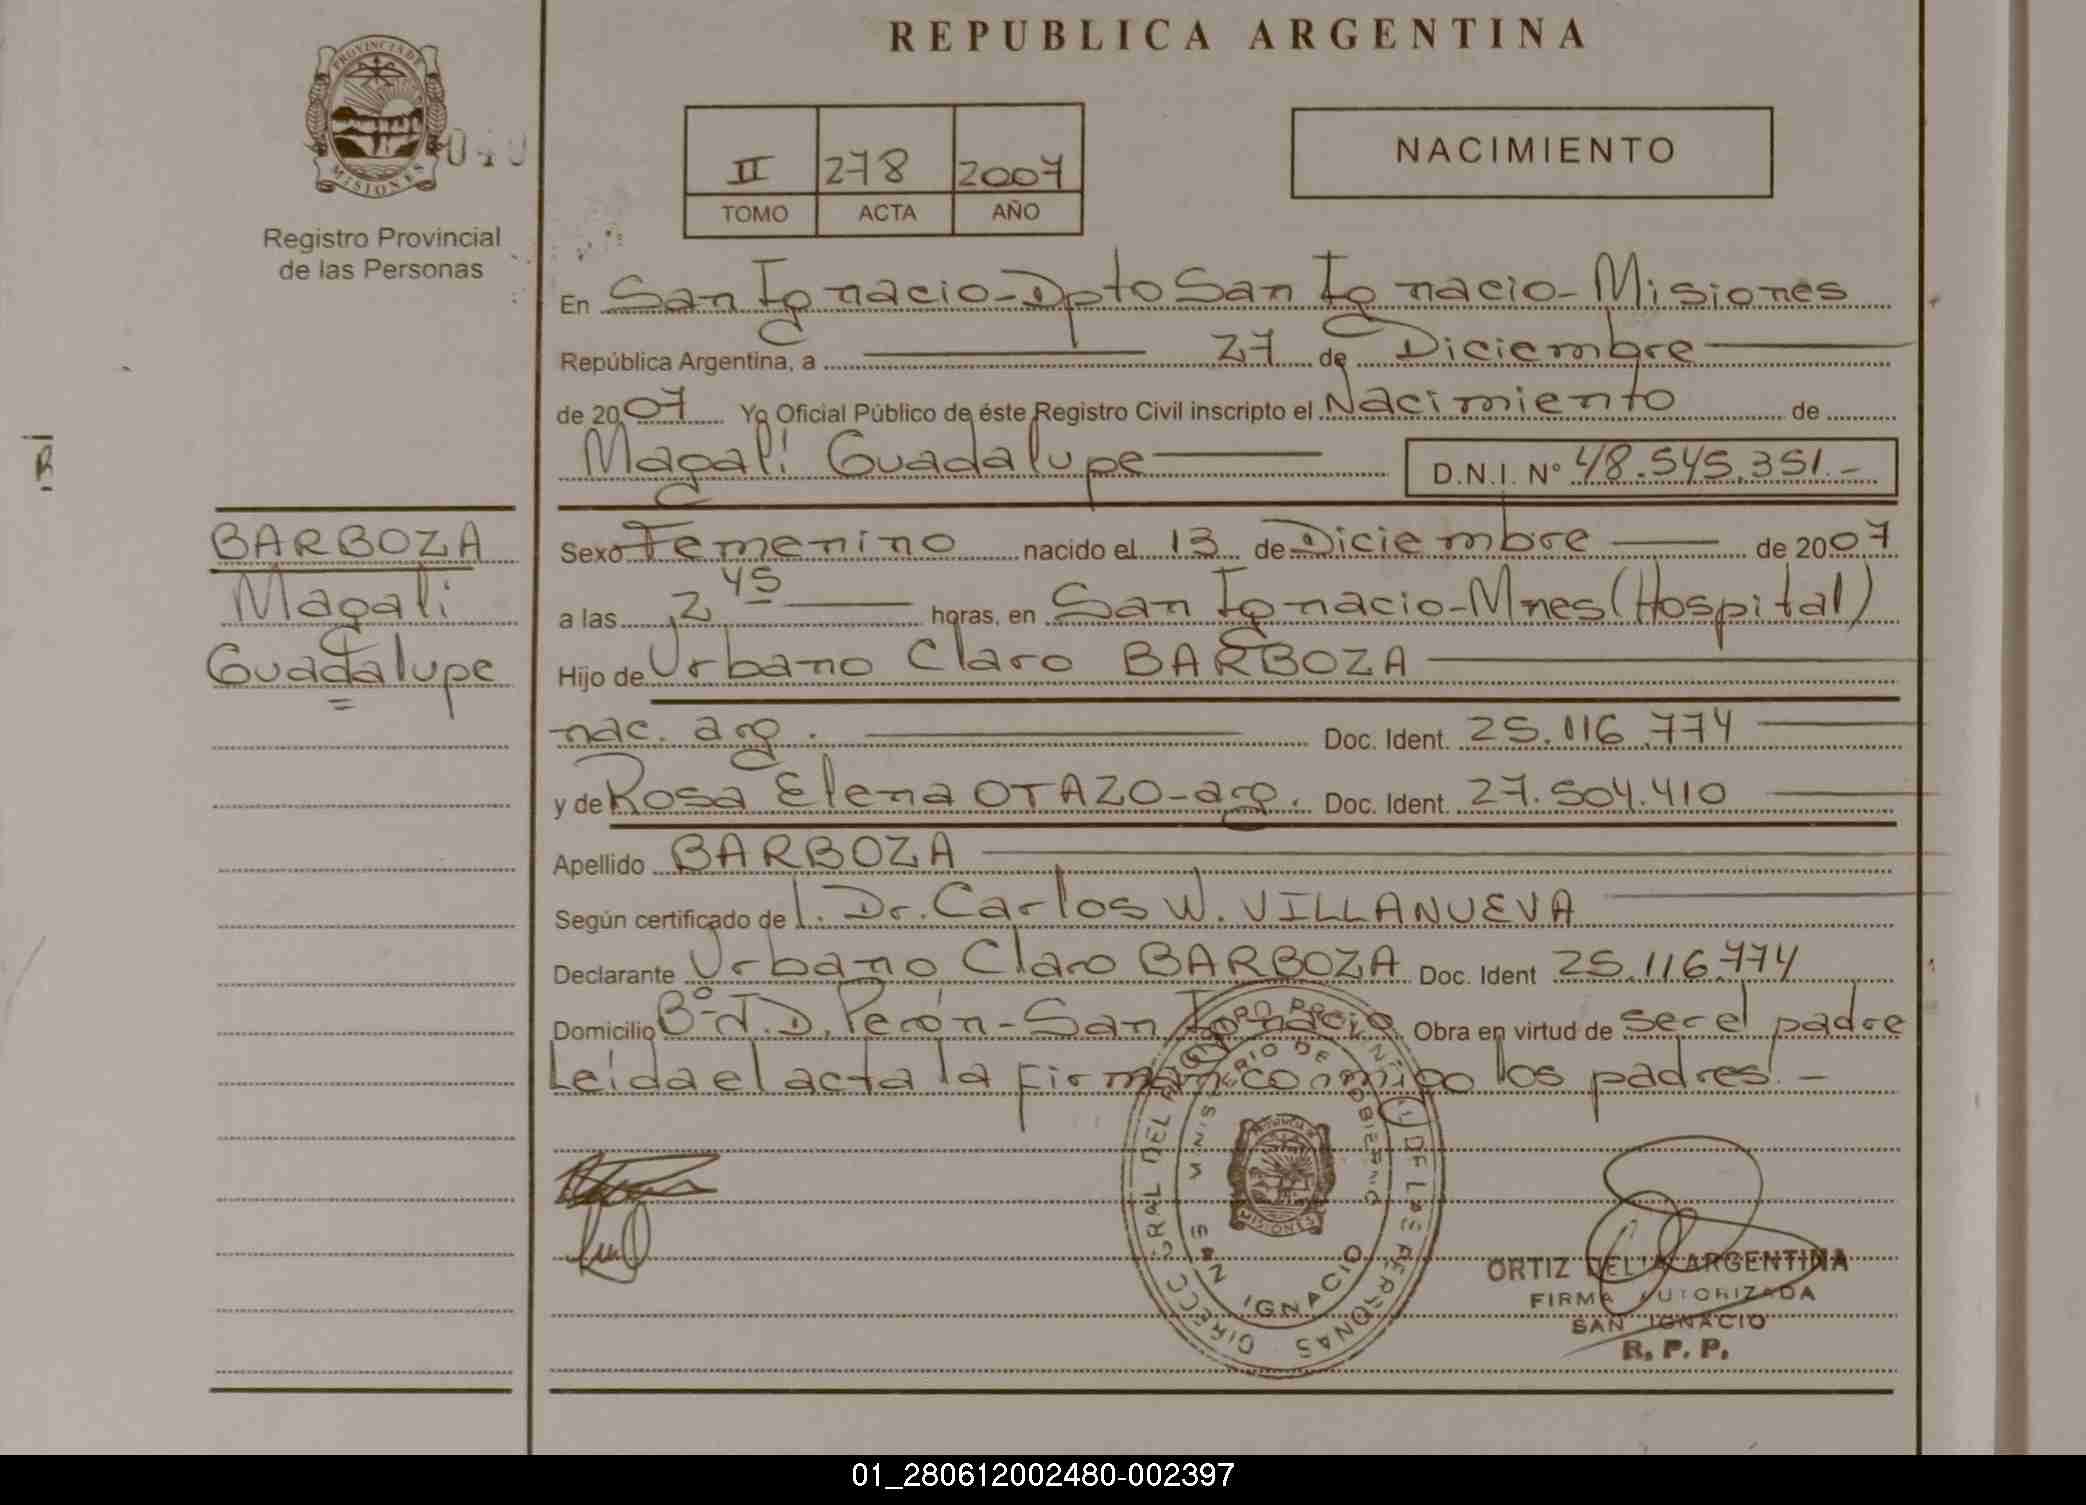 REPUBLICA ARGENTINA
PROVINCIA DE
MISIONES
Registro Provincial
de las Personas
II 278 2007
TOMO ACTA AÑO
NACIMIENTO
En San Ignacio - Dpto San Ignacio - Misiones
República Argentina, a 27 de Diciembre
de 2007 Yo Oficial Público de éste Registro Civil inscripto el Nacimiento de
Magali Guadalupe D.N.I. Nº 48.545.351.-
R
BARBOZA
Magali
Guadalupe
Sexo Femenino nacido el 13 de Diciembre de 2007
a las 2 45 horas, en San Ignacio - Mnes (Hospital)
Hijo de Urbano Claro BARBOZA
nac. arg. Doc. Ident. 25.116.774
y de Rosa Elena OTAZO - arg. Doc. Ident. 27.504.410
Apellido BARBOZA
Según certificado de l. Dr. Carlos W. VILLANUEVA
Declarante Urbano Claro BARBOZA Doc. Ident 25.116.774
Domicilio Bº J.D. Perón - San Ignacio Obra en virtud de ser el padre
Leída el acta la firman conmigo los padres. -
MINISTERIO DE GOBIERNO
DE LAS PERSONAS
MISIONES
IGNACIO
ORTIZ DELIA ARGENTINA
FIRMA AUTORIZADA
SAN IGNACIO
R. P. P.
01_280612002480-002397